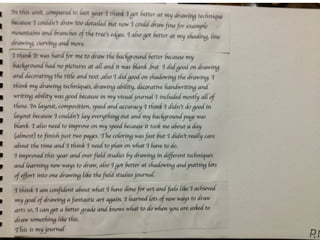 In this unit, compared to last year I think I get better at my drawing technique
because I couldn't draw too detailed but now I could draw fine for example
mountains and branches of the tree's edges. I also got better at my shading, line
drawing, curving and more.
I think it was hard for me to draw the background better because my
background had no pictures at all and it was blank but I did good on drawing
and decorating the title and text also I did good on shadowing the drawing. I
think my drawing techniques, drawing ability, decorative handwriting and
writing ability was good because in my visual journal I included mostly all of
those. In layout, composition, speed and accuracy I think I didn't do good in
layout because I couldn't lay everything out and my background page was
blank. I also need to improve on my speed because it took me about a day
(almost) to finish just two pages. The coloring was fast but I didn't really care
about the time and I think I need to plan on what I have to do.
I improved this year and over field studies by drawing in different techniques
and learning new ways to draw, also I got better at shadowing and putting lots
of effort into one drawing like the field studies journal.
I think I am confident about what I have done for art and feels like I achieved
my goal of drawing a fantastic art again. I learned lots of new ways to draw
arts so, I can get a better grade and knows what to do when you are asked to
draw something like this.
This is my journal